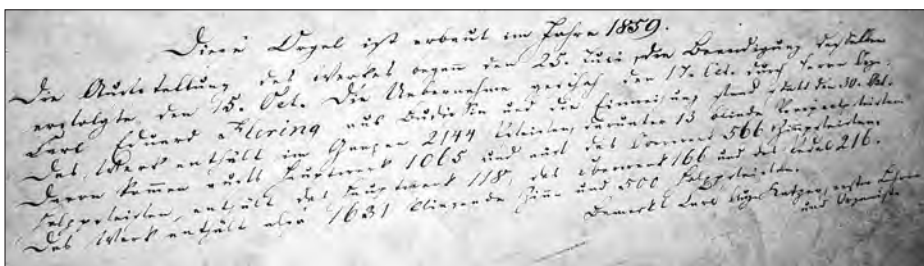 Diese Orgel ist erbaut im Jahre 1859.
Die Aufstellung des Werkes begann den 25. Juli, die Beendigung desselben
erfolgte den 15. Oct. Die Uebernahme geschah den 17. Oct. durch Herrn
Carl Eduard Hering aus Budissin und die Einweihung fand statt den 30. Oct.
Das Werk enthält im Ganzen 2144 Pfeifen, darunter 13 blinde Prospectpfeifen.
Davon kommen aufs Hauptwerk 1065 und auf das 566 Zinnpfeifen,
Holzpfeifen enthält das Hauptwerk 118, das Oberwerk 166 und das Pedal 216.
Das Werk enthält also 1631 klingende Zinn und 500 Holzpfeifen.
Bemerkt Carl Aug. erster Lehrer
und Organist